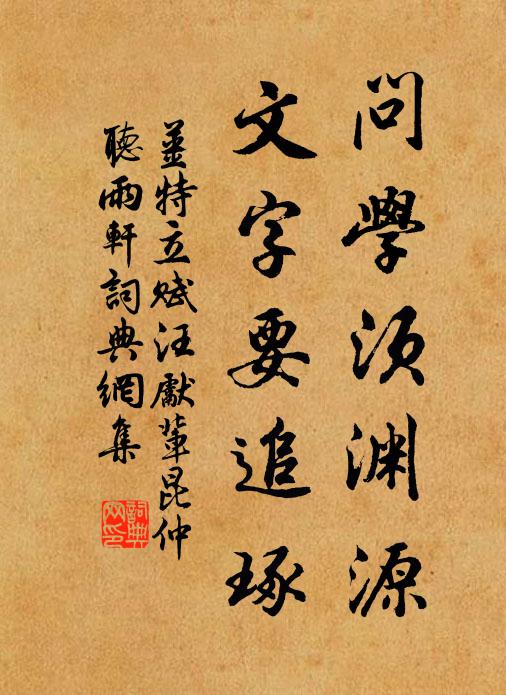 問學須渊源
文字要追琢
薑特立赋汪獻軰昆仲
聽雨軒詞典網集
詞典網印